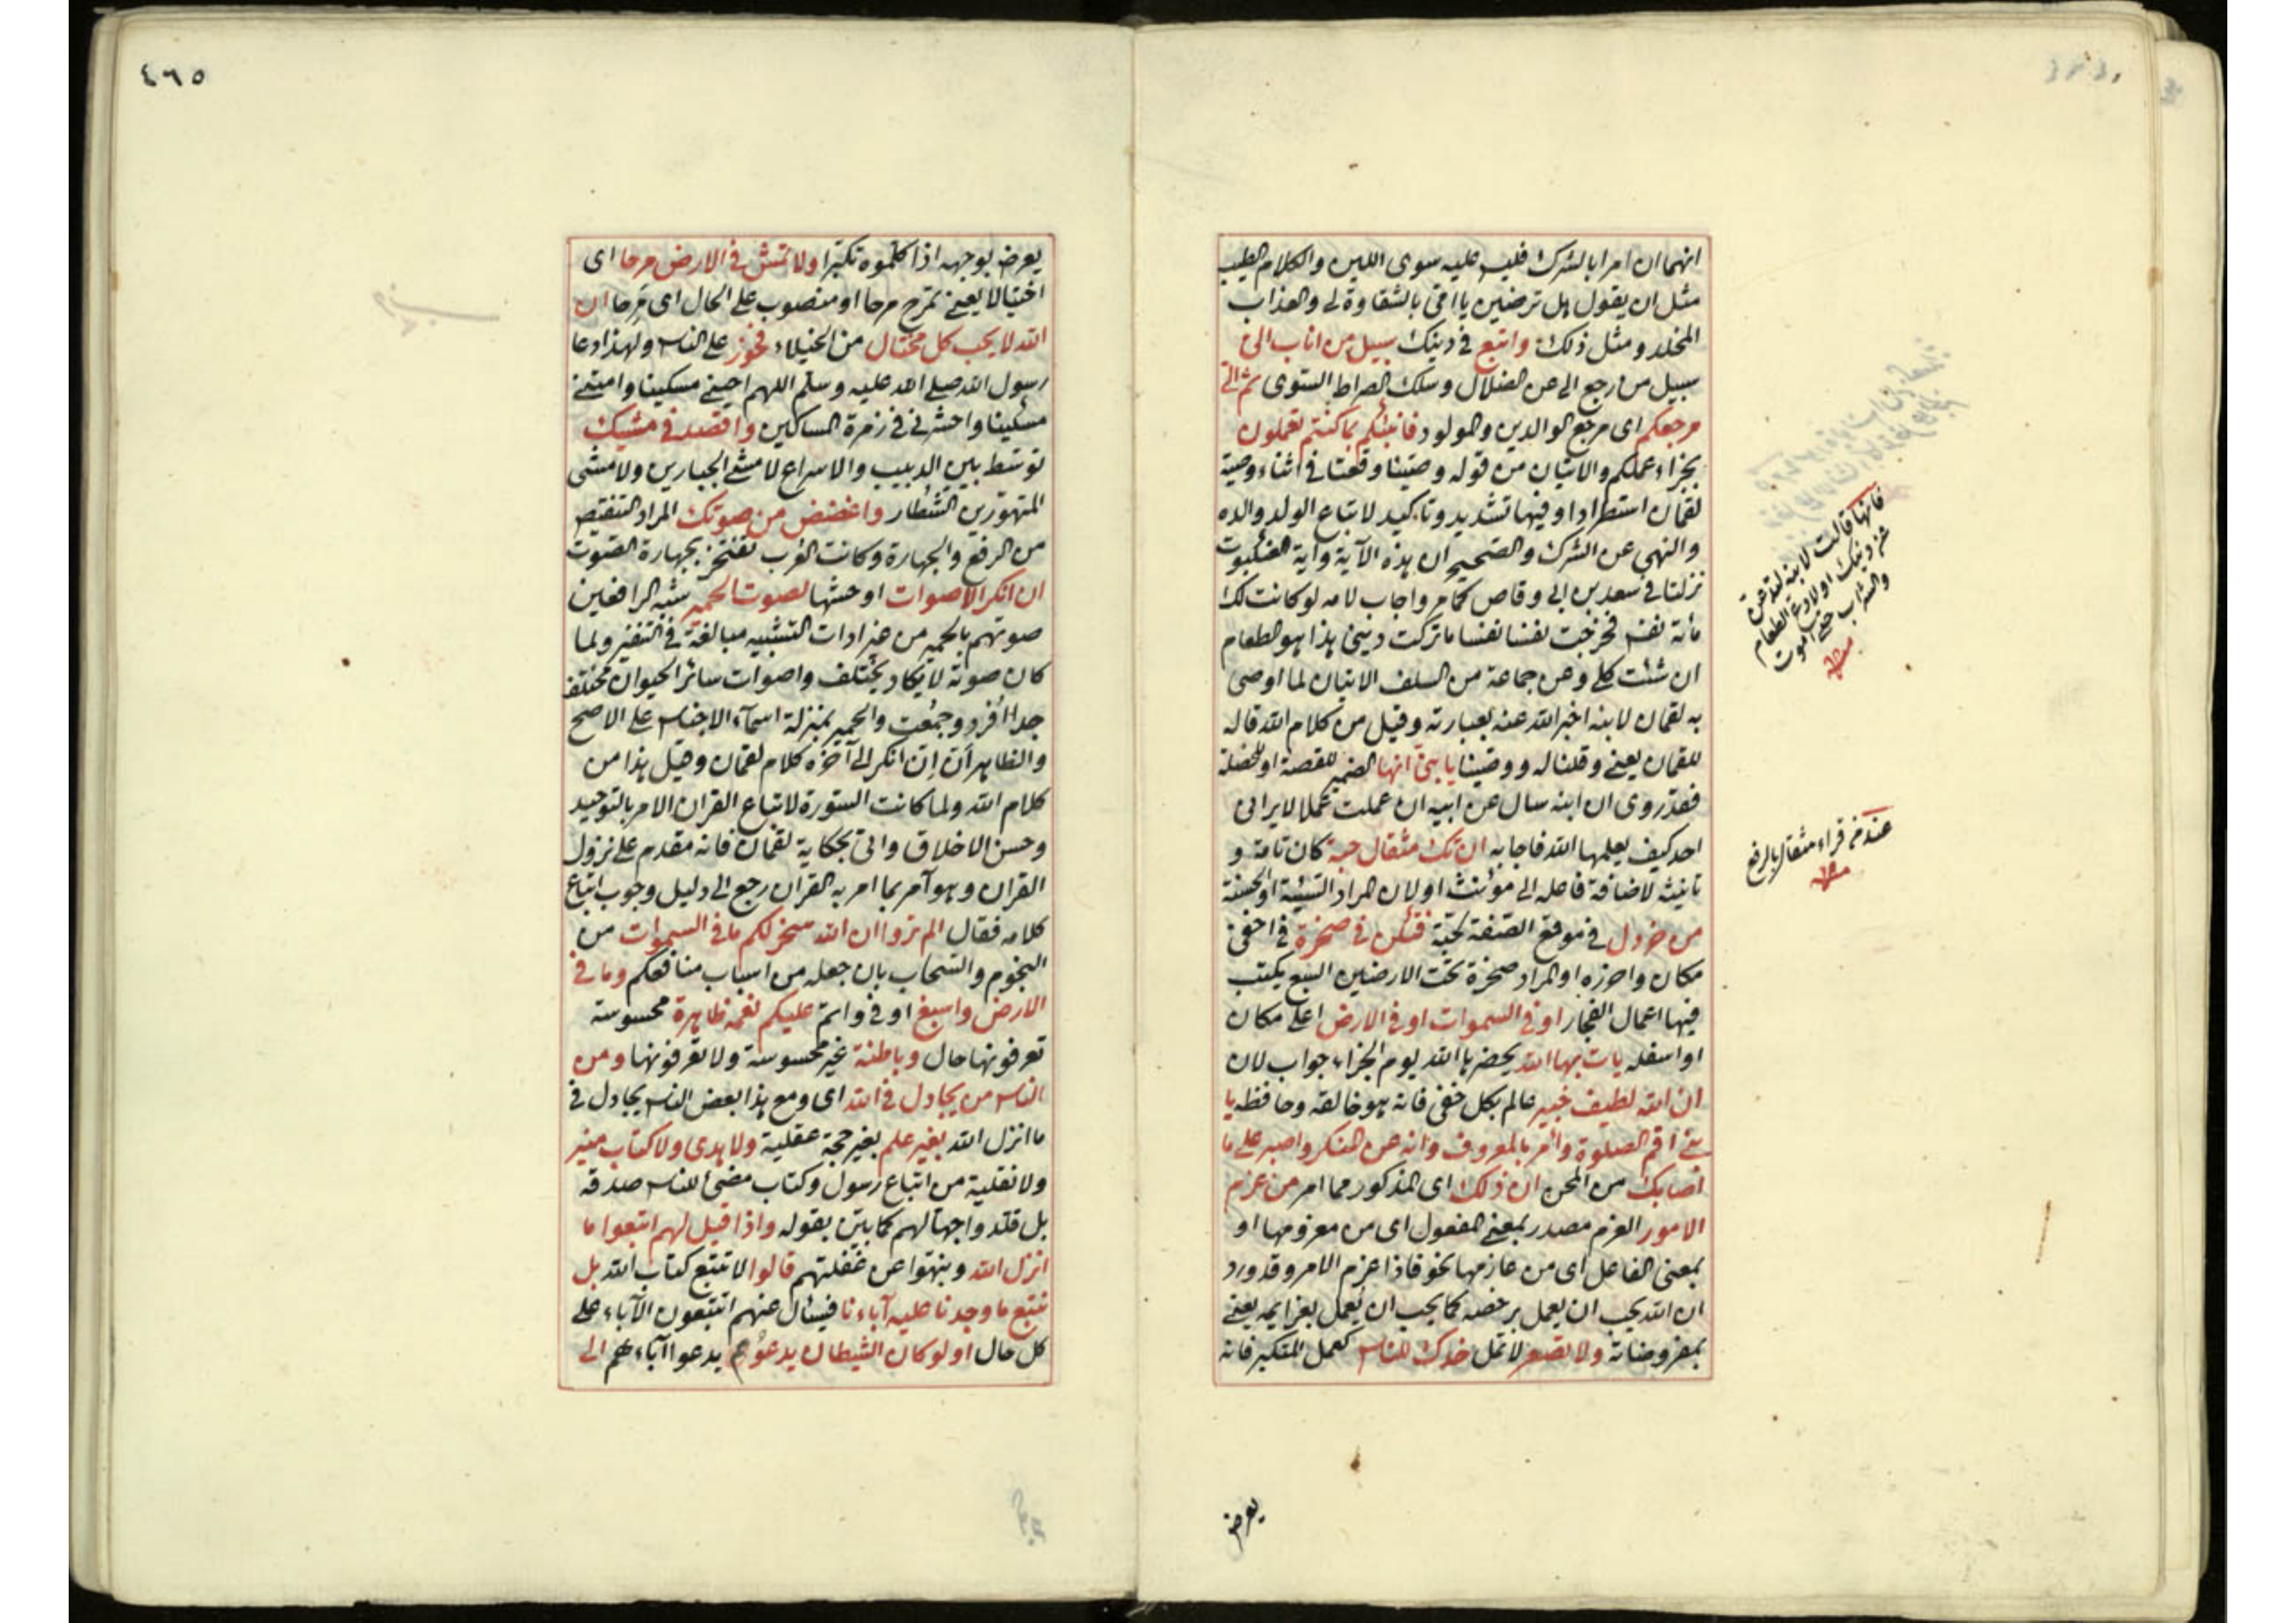 انهما ان امرا بالشرك فليس عليه سوى اللين والكلام الطيب
مثل ان يقول هل ترضين يا امى بالشقاوة لى والعذاب
المخلد ومثل ذلك واتبع فى دينك سبيل من اناب الىّ
سبيل من رجع الى عن الضلال وسلك الصراط السوى ثم الىّ
مرجعكم اى مرجع الوالدين والمولود فانبئكم بما كنتم تعملون
بجزاء عملكم والايتان من قوله وصينا وقعتا فى اثناء وصية
لقمان استطرادا وفيها تشديد وتاكيد لاتباع الولد والده
والنهى عن الشرك والصحيح ان هذه الآية وآية العنكبوت
نزلتا فى سعد بن ابى وقاص كما مر واجاب لامه لو كانت لك
مائة نفس فخرجت نفسا نفسا ما تركت دينى هذا هو الطعام
ان شئت كلى وعن جماعة من السلف الايتان لما اوصى
به لقمان لابنه اخبر الله عنه بعبارته وقيل من كلام الله قاله
للقمان يعنى وقلنا له ووصينا يا بنىّ انها الضمير للقصة او للخصلة
فقد روى ان ابنه سال عن ابيه ان عملت عملا لا يرانى
احد كيف يعلمها الله فاجابه ان تك مثقال حبة كان تامة و
تانيثه لاضافة فاعله الى مؤنث او لان المراد السيئة او الحسنة
من خردل فى موقع الصفة لحبة فتكن فى صخرة فى اخفى
مكان واحرزه او المراد صخرة تحت الارضين السبع يكتب
فيها اعمال الفجار او فى السموات او فى الارض اعلى مكان
او اسفله يات بها الله يحضرها الله يوم الجزاء جواب لان
ان الله لطيف خبير عالم بكل خفى فانه هو خالقه وحافظه يا
بنىّ اقم الصلوة وأمر بالمعروف وانه عن المنكر واصبر على ما
اصابك من المحن ان ذلك اى المذكور مما امر من عزم
الامور العزم مصدر بمعنى المفعول اى من معزومها او
بمعنى الفاعل اى من عازمها نحو فاذا عزم الامر وقد ورد
ان الله يحب ان يعمل برخصه كما يحب ان يعمل بعزايمه يعنى
بمفروضاته ولا تصعر لا تمل خدك للناس كعمل المتكبر فانه
فانها قالت لابنه لتدعن
عن دينك او لادع الطعام
والشراب حتى اموت
منه
عند من قراء مثقال بالرفع
منه
يعرض
٤٦٥
يعرض بوجهه اذا كلموه تكبرا ولا تمش فى الارض مرحا اى
اختيالا يعنى تمرح مرحا او منصوب على الحال اى مَرِحا ان
الله لا يحب كل مختال من الخيلاء فخور على الناس ولهذا دعا
رسول الله صلى الله عليه وسلم اللهم احينى مسكينا وامتنى
مسكينا واحشرنى فى زمرة المساكين واقصد فى مشيك
توسّط بين الدبيب والاسراع لا مشى الجبارين ولا مشى
المتهورين الشطار واغضض من صوتك المراد التنقيص
من الرفع والجهارة وكانت العرب تفتخر بجهارة الصوت
ان انكر الاصوات اوحشها لصوت الحمير شبه الرافعين
صوتهم بالحمير من غير ادات التشبيه مبالغة فى التنفير ولما
كان صوته لا يكاد يختلف واصوات سائر الحيوان مختلف
جدا افرد وجمعت والحمير بمنزلة اسمآء الاجناس على الاصح
والظاهر أن إن انكر الى آخره كلام لقمان وقيل هذا من
كلام الله ولما كانت السورة لاتباع القران الامر بالتوحيد
وحسن الاخلاق واتى بحكاية لقمان فانه مقدم على نزول
القران وهو آمر بما امر به القران رجع الى دليل وجوب اتباع
كلامه فقال الم تروا ان الله سخر لكم ما فى السموات من
النجوم والسحاب بان جعله من اسباب منافعكم وما فى
الارض واسبغ اوفى واتمّ عليكم نعمه ظاهرة محسوسة
تعرفونها حال وباطنة غير محسوسة ولا تعرفونها ومن
الناس من يجادل فى الله اى ومع هذا بعض الناس يجادل فى
ما انزل الله بغير علم بغير حجة عقلية ولا هدى ولا كتاب منير
ولا نقلية من اتباع رسول وكتاب مضئ للناس صدقه
بل قلدوا جهالهم كما بيّن بقوله واذا قيل لهم اتبعوا ما
انزل الله وينتهوا عن غفلتهم قالوا لا نتبع كتاب الله بل
نتبع ما وجدنا عليه آباءنا فيسئال عنهم اتتبعون الآباء على
كل حال اولو كان الشيطان يدعوهم يدعوا آباءهم الى